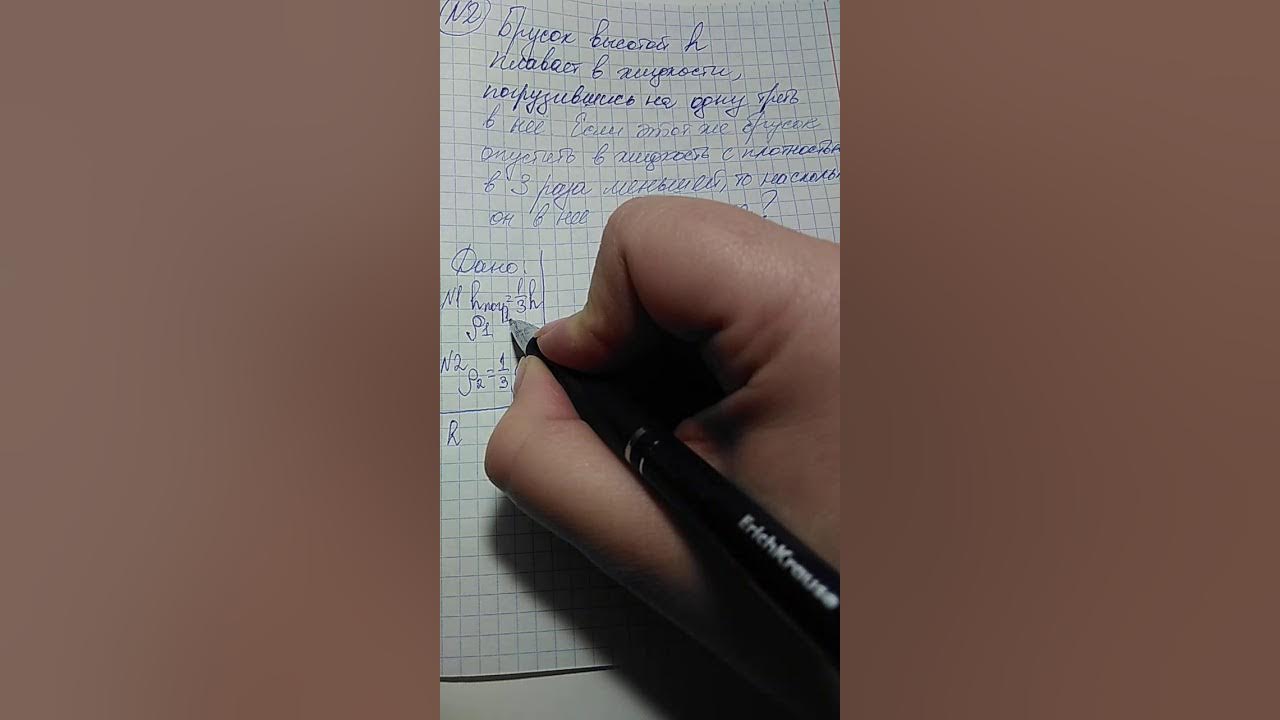 N2
Брусок высотой h
плавает в жидкости,
погрузившись на одну треть
в нее. Если этот же брусок
опустить в жидкость с плотностью
в 3 раза меньшей, то насколь
он в нее ?
Дано:
N1 hпогр1=1/3h
ρ1
N2 ρ2=1/3
h
ErichKrause